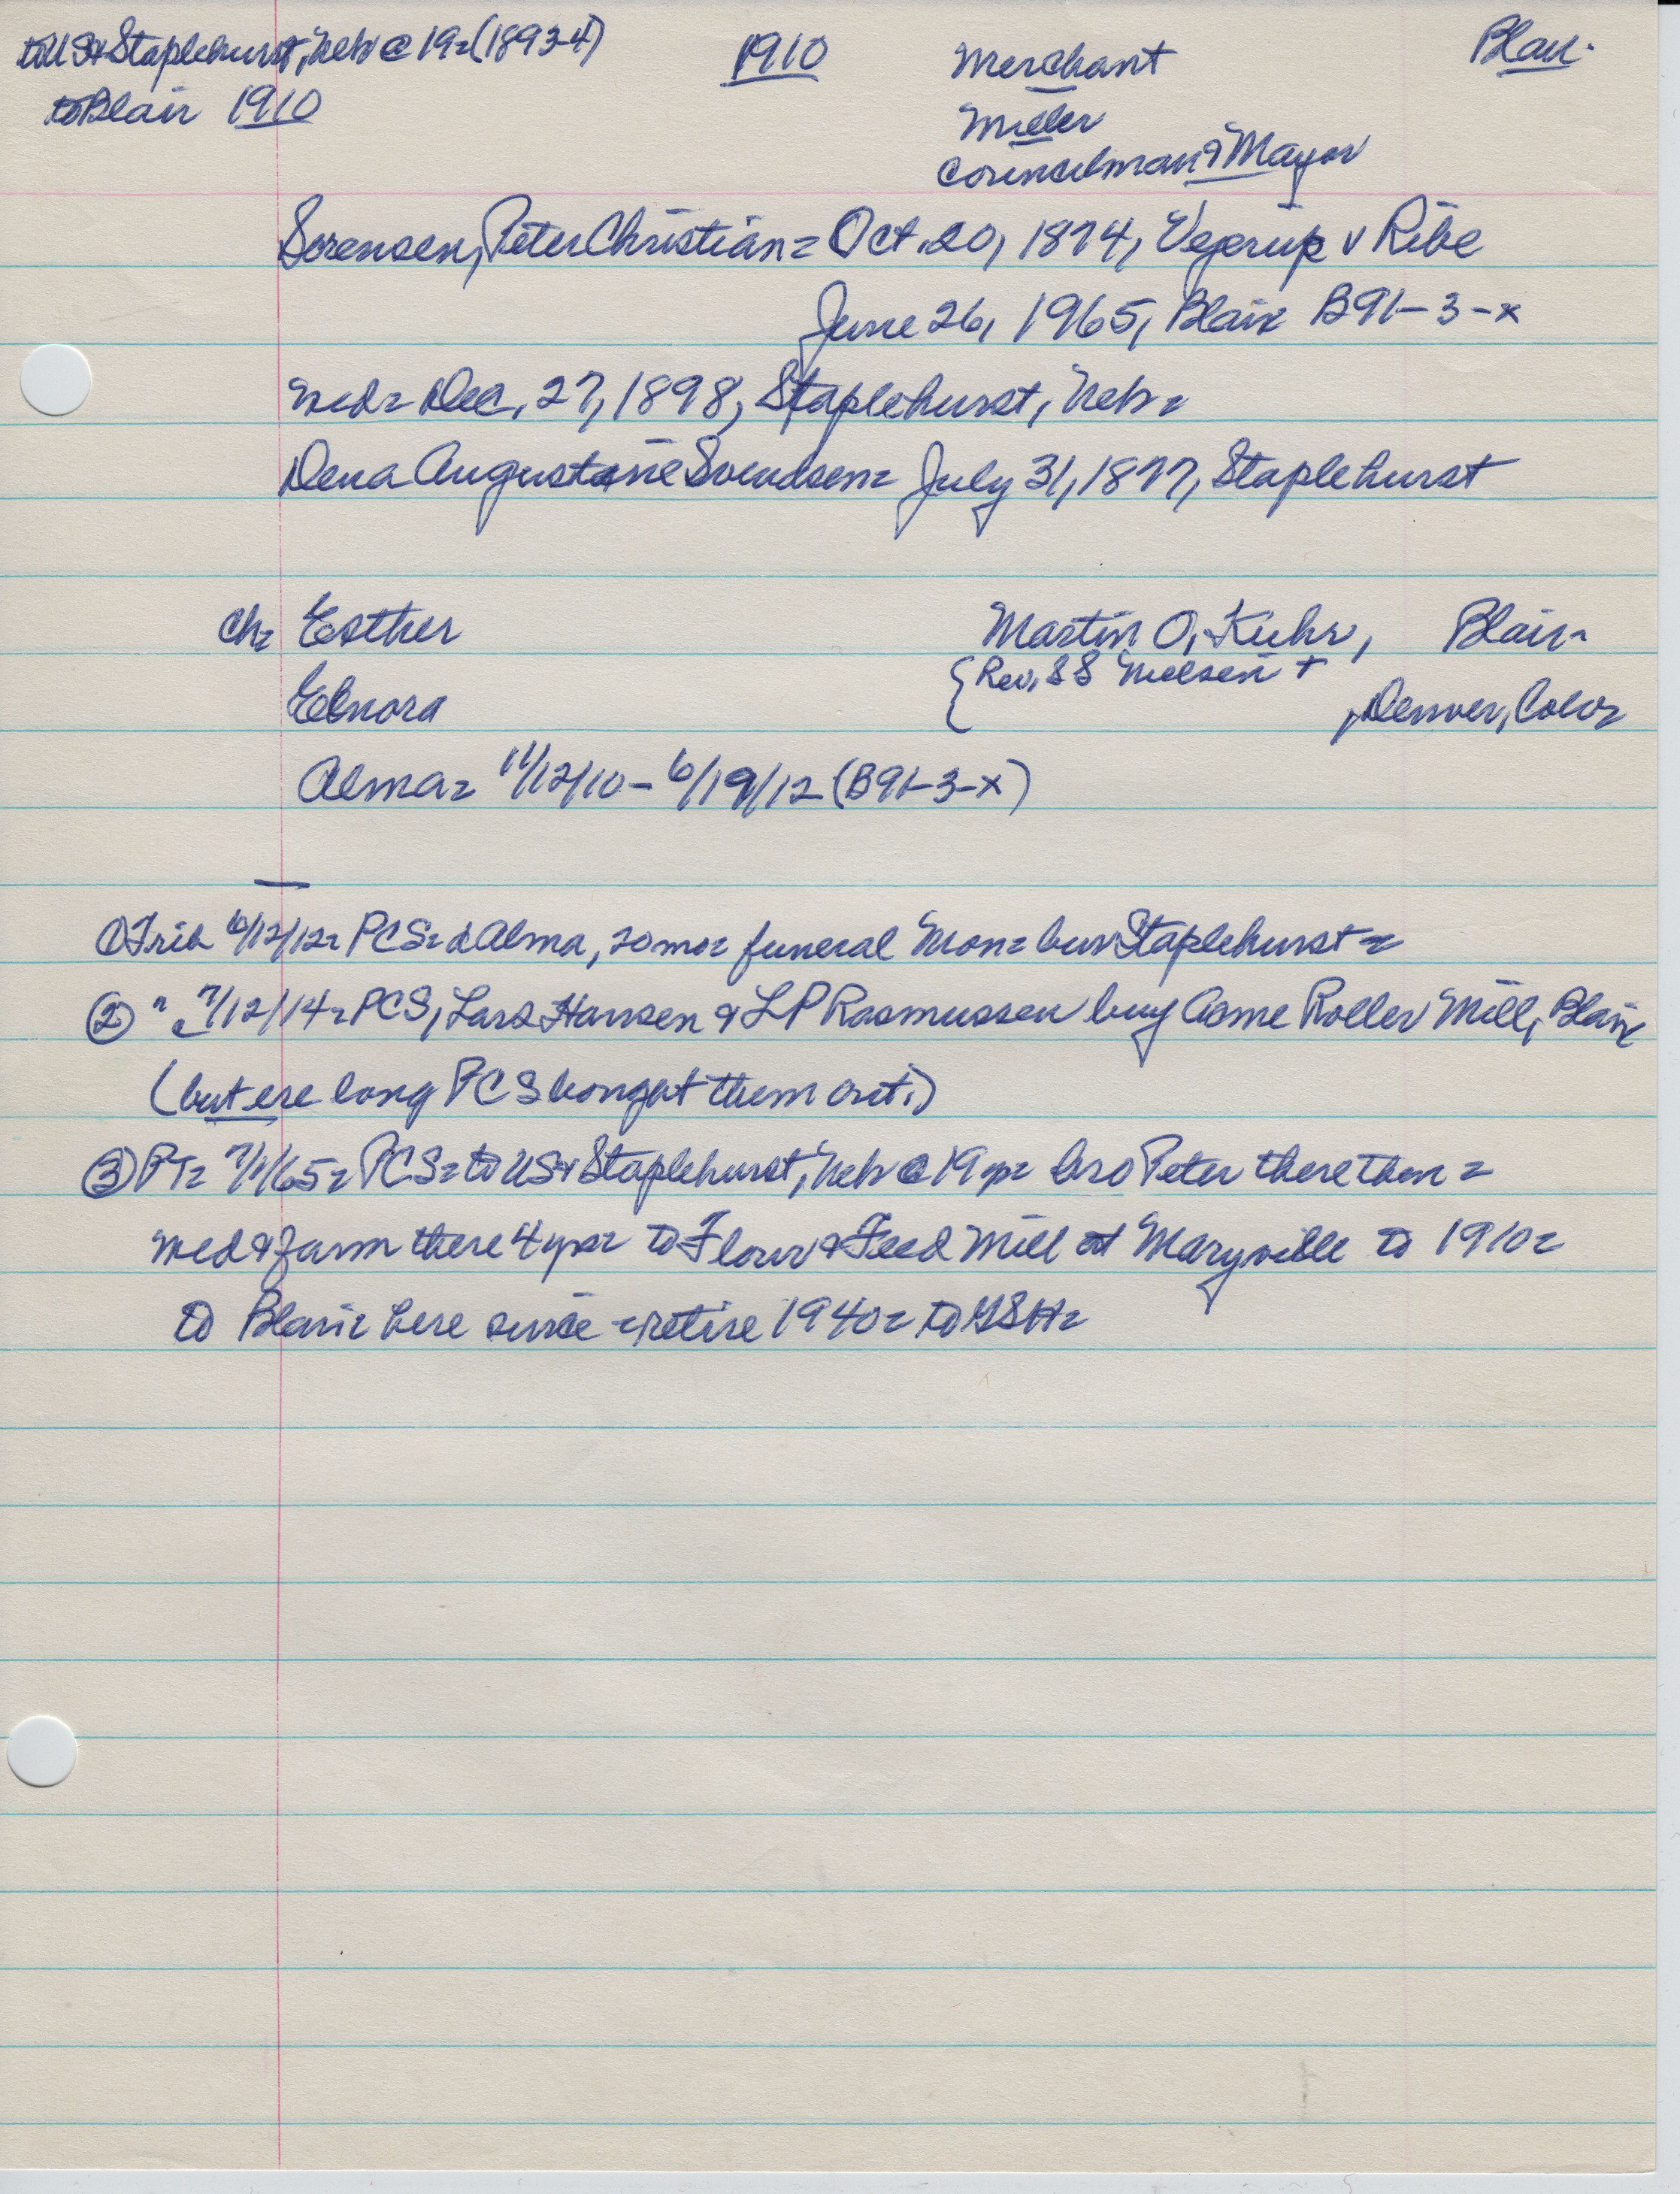 to US & Staplehurst, Neb @ 19= (1893-4)
1910
Merchant
Blair.
to Blair 1910
Miller
Councilman & Mayor
Sorensen, Peter Christian = Oct. 20, 1874, Vejrup v Ribe
June 26, 1965, Blair B91-3-x
md = Dec. 27, 1898, Staplehurst, Neb =
Dena Augustane Svendsen = July 31, 1877, Staplehurst
Ch= Esther
Martin O. Kuhr, Blair-
{Rev. SS Nielsen +
Elnora
, Denver, Colo=
Alma = 11/12/10 - 6/19/12 (B91-3-x)
① Trib 6/12/12= PCS= d Alma, 20 mo= funeral Mon= bur Staplehurst =
② " 7/12/14= PCS, Lars Hansen & LP Rasmussen buy Acme Roller Mill, Blair
(but ere long PCS bought them out.)
③ PT= 7/1/65= PCS= to US & Staplehurst, Neb @ 19 yr= bro Peter there then =
md & farm there 4 yrs= to Flour & Feed Mill at Maryville to 1910=
to Blair= here since = retire 1940= to